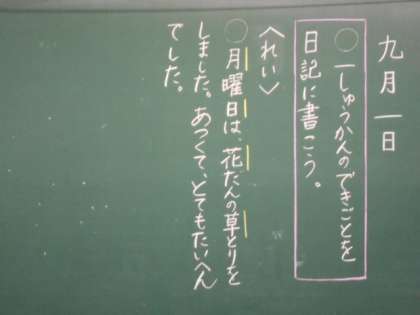 九月一日
○一しゅうかんのできごとを
日記に書こう。
〈れい〉
○月曜日は、花だんの草とりを
しました。あつくて、とてもたいへん
でした。